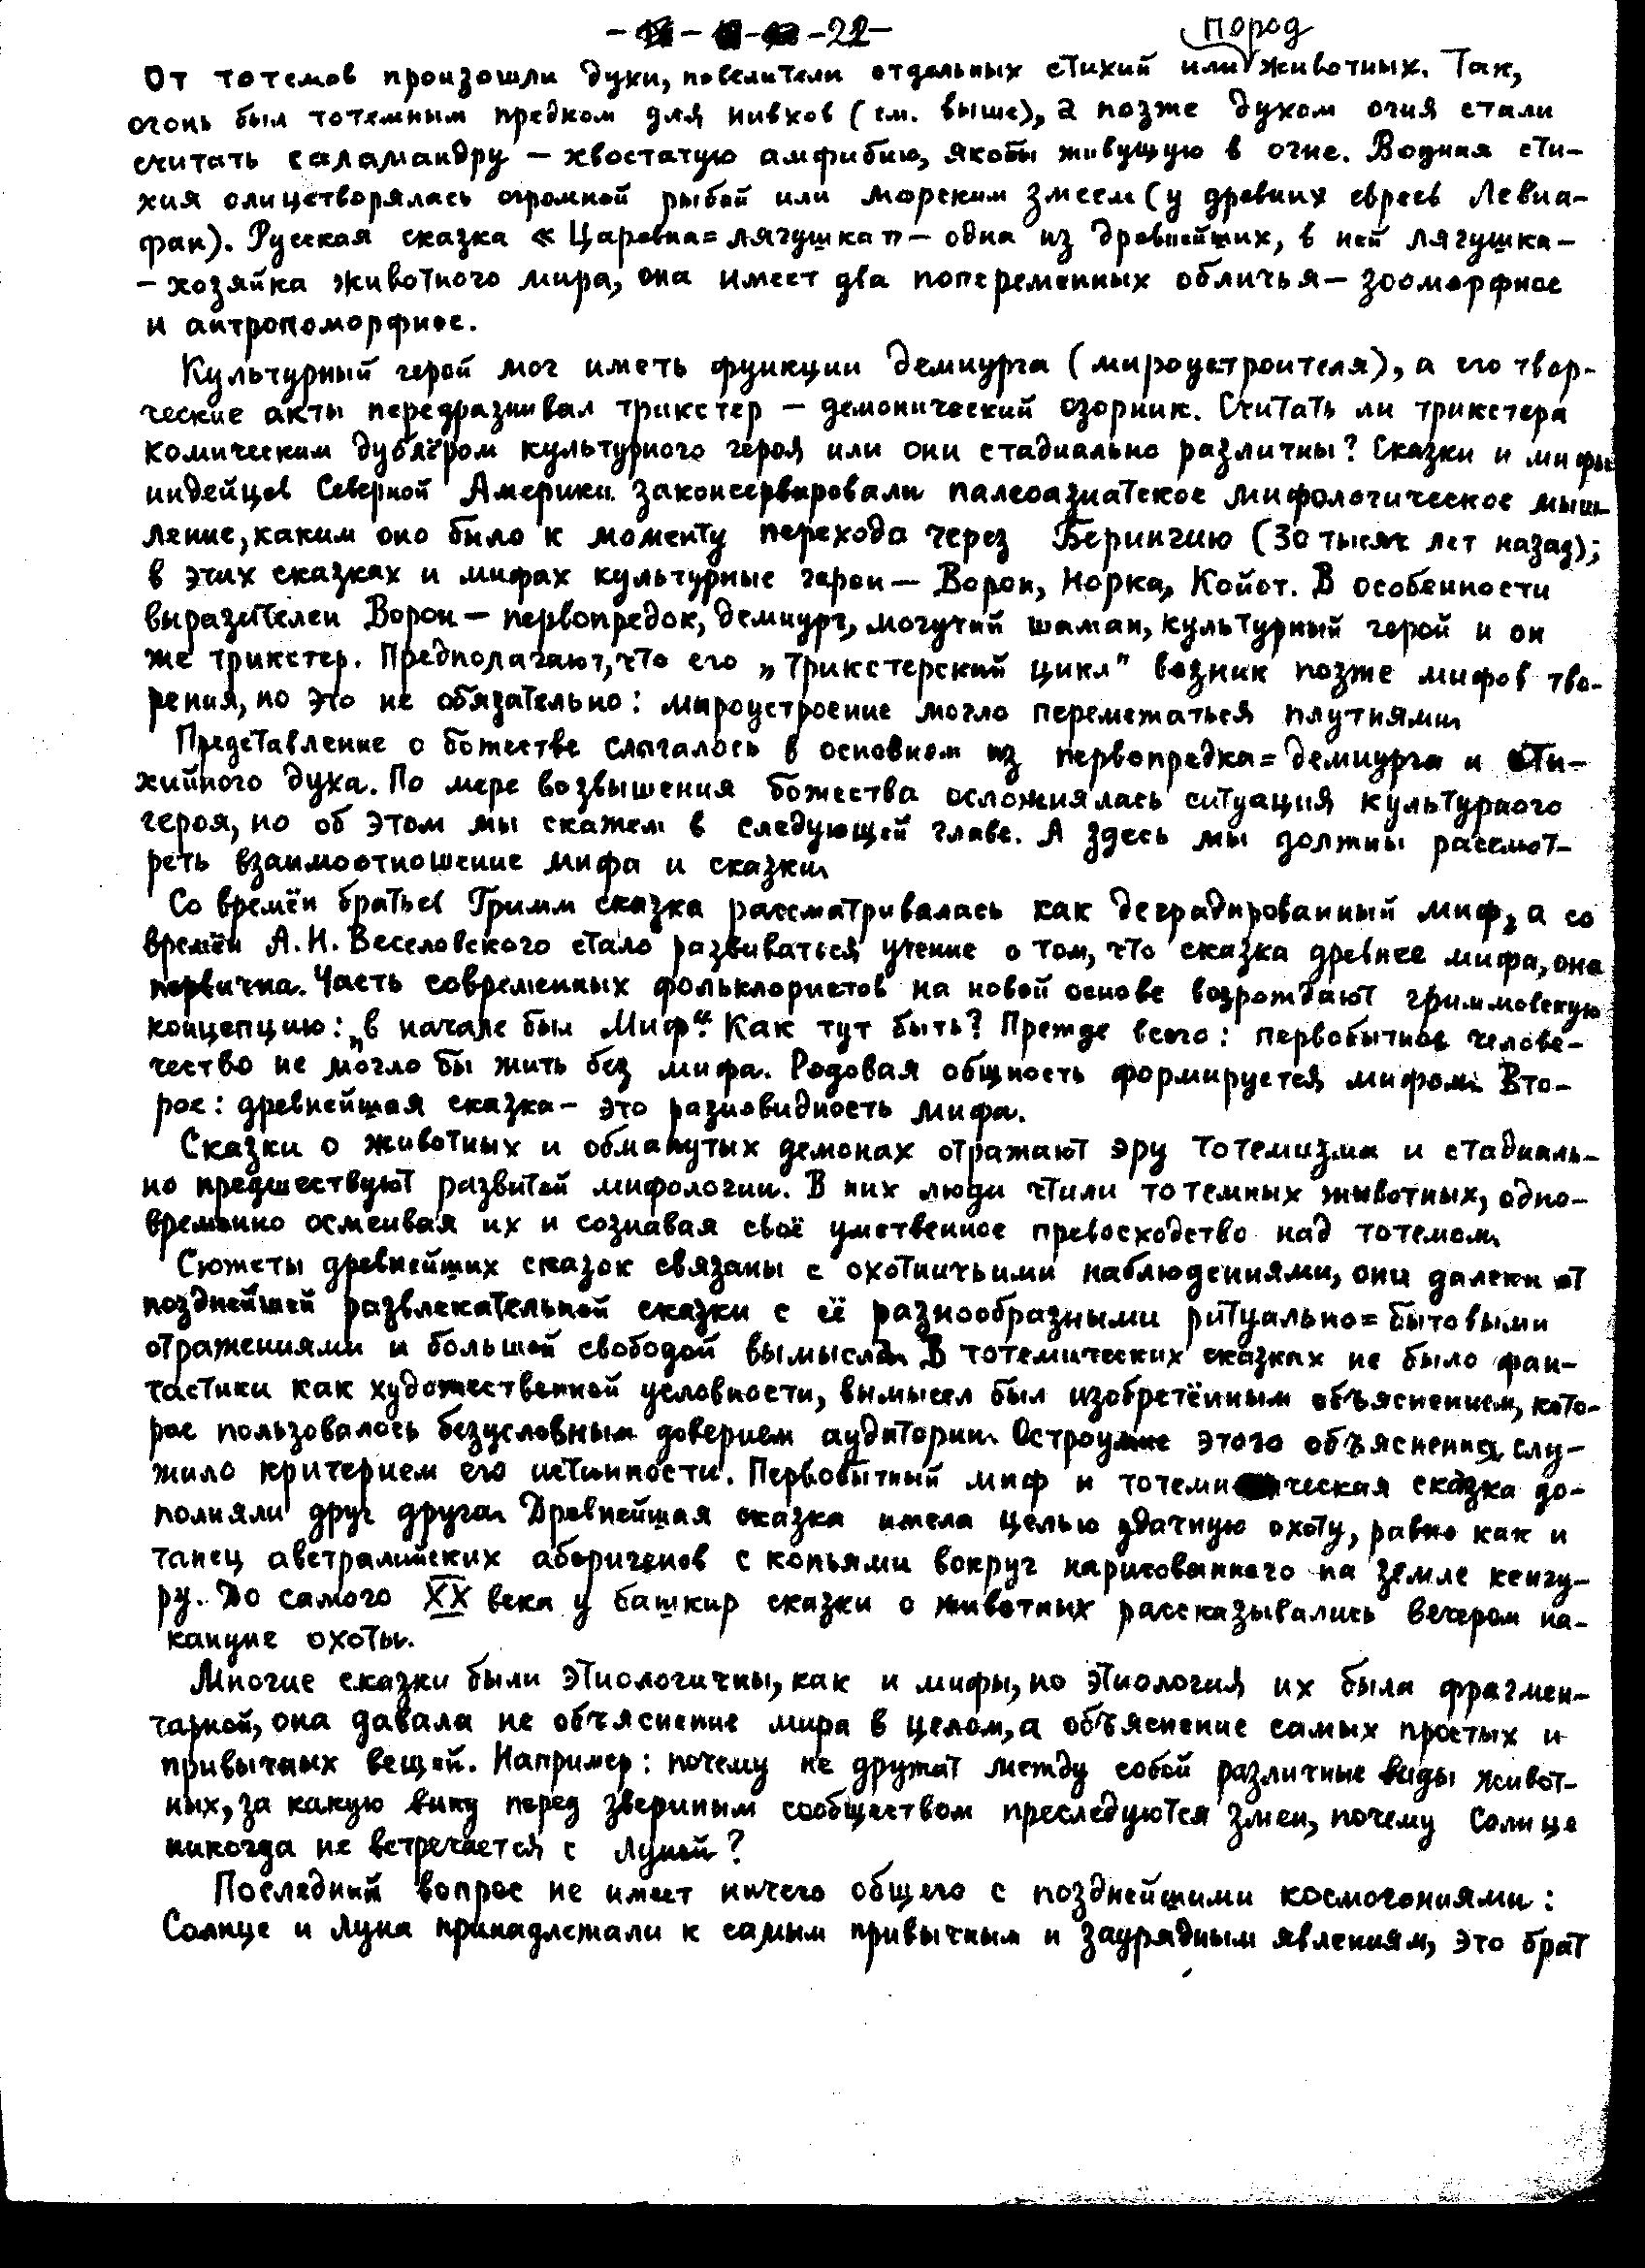 -22-
пород
От тотемов произошли духи, повелители отдельных стихий или животных. Так,
огонь был тотемным предком для нивхов (см. выше), а позже духом огня стали
считать саламандру – хвостатую амфибию, якобы живущую в огне. Водная сти-
хия олицетворялась огромной рыбой или морским змеем (у древних евреев Левиа-
фан). Русская сказка «Царевна=лягушка» – одна из древнейших, в ней лягушка –
– хозяйка животного мира, она имеет два попеременных обличья – зооморфное
и антропоморфное.
Культурный герой мог иметь функции демиурга (мироустроителя), а его твор-
ческие акты передразнивал трикстер – демонический озорник. Считать ли трикстера
комическим дублёром культурного героя или они стадиально различны? Сказки и мифы
индейцев Северной Америки законсервировали палеоазиатское мифологическое мыш-
ление, каким оно было к моменту перехода через Берингию (30 тысяч лет назад);
в этих сказках и мифах культурные герои – Ворон, Норка, Койот. В особенности
выразителен Ворон – первопредок, демиург, могучий шаман, культурный герой и он
же трикстер. Предполагают, что его „трикстерский цикл" возник позже мифов тво-
рения, но это не обязательно: мироустроение могло перемежаться плутнями.
Представление о божестве слагалось в основном из первопредка=демиурга и сти-
хийного духа. По мере возвышения божества осложнялась ситуация культурного
героя, но об этом мы скажем в следующей главе. А здесь мы должны рассмот-
реть взаимоотношение мифа и сказки.
Со времён братьев Гримм сказка рассматривалась как деградированный миф, а со
времён А.Н. Веселовского стало развиваться учение о том, что сказка древнее мифа, она
первична. Часть современных фольклористов на новой основе возрождают гриммовскую
концепцию: „в начале был Миф". Как тут быть? Прежде всего: первобытное челове-
чество не могло бы жить без мифа. Родовая общность формируется мифом. Вто-
рое: древнейшая сказка – это разновидность мифа.
Сказки о животных и обманутых демонах отражают эру тотемизма и стадиаль-
но предшествуют развитой мифологии. В них люди чтили тотемных животных, одно-
временно осмеивая их и сознавая своё умственное превосходство над тотемом.
Сюжеты древнейших сказок связаны с охотничьими наблюдениями, они далеки от
позднейшей развлекательной сказки с её разнообразными ритуально=бытовыми
отражениями и большой свободой вымысла. В тотемических сказках не было фан-
тастики как художественной условности, вымысел был изобретённым объяснением, кото-
рое пользовалось безусловным доверием аудитории. Остроумие этого объяснения слу-
жило критерием его истинности. Первобытный миф и тотемическая сказка до-
полняли друг друга. Древнейшая сказка имела целью удачную охоту, равно как и
танец австралийских аборигенов с копьями вокруг нарисованного на земле кенгу-
ру. До самого XX века у башкир сказки о животных рассказывались вечером на-
кануне охоты.
Многие сказки были этиологичны, как и мифы, но этиология их была фрагмен-
тарной, она давала не объяснение мира в целом, а объяснение самых простых и
привычных вещей. Например: почему не дружат между собой различные виды живот-
ных, за какую вину перед звериным сообществом преследуются змеи, почему Солнце
никогда не встречается с Луной?
Последний вопрос не имеет ничего общего с позднейшими космогониями:
Солнце и Луна принадлежали к самым привычным и заурядным явлениям, это брат